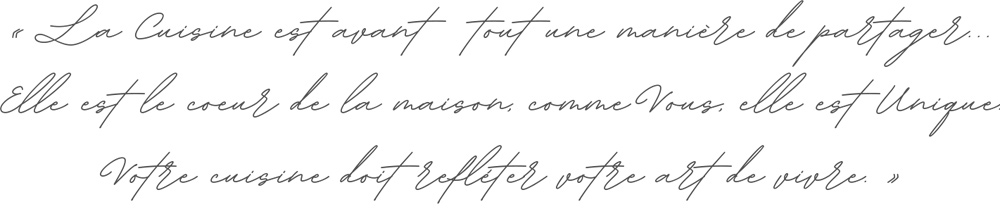 « La Cuisine est avant tout une manière de partager...
Elle est le coeur de la maison, comme Vous, elle est Unique.
Votre cuisine doit refléter votre art de vivre. »